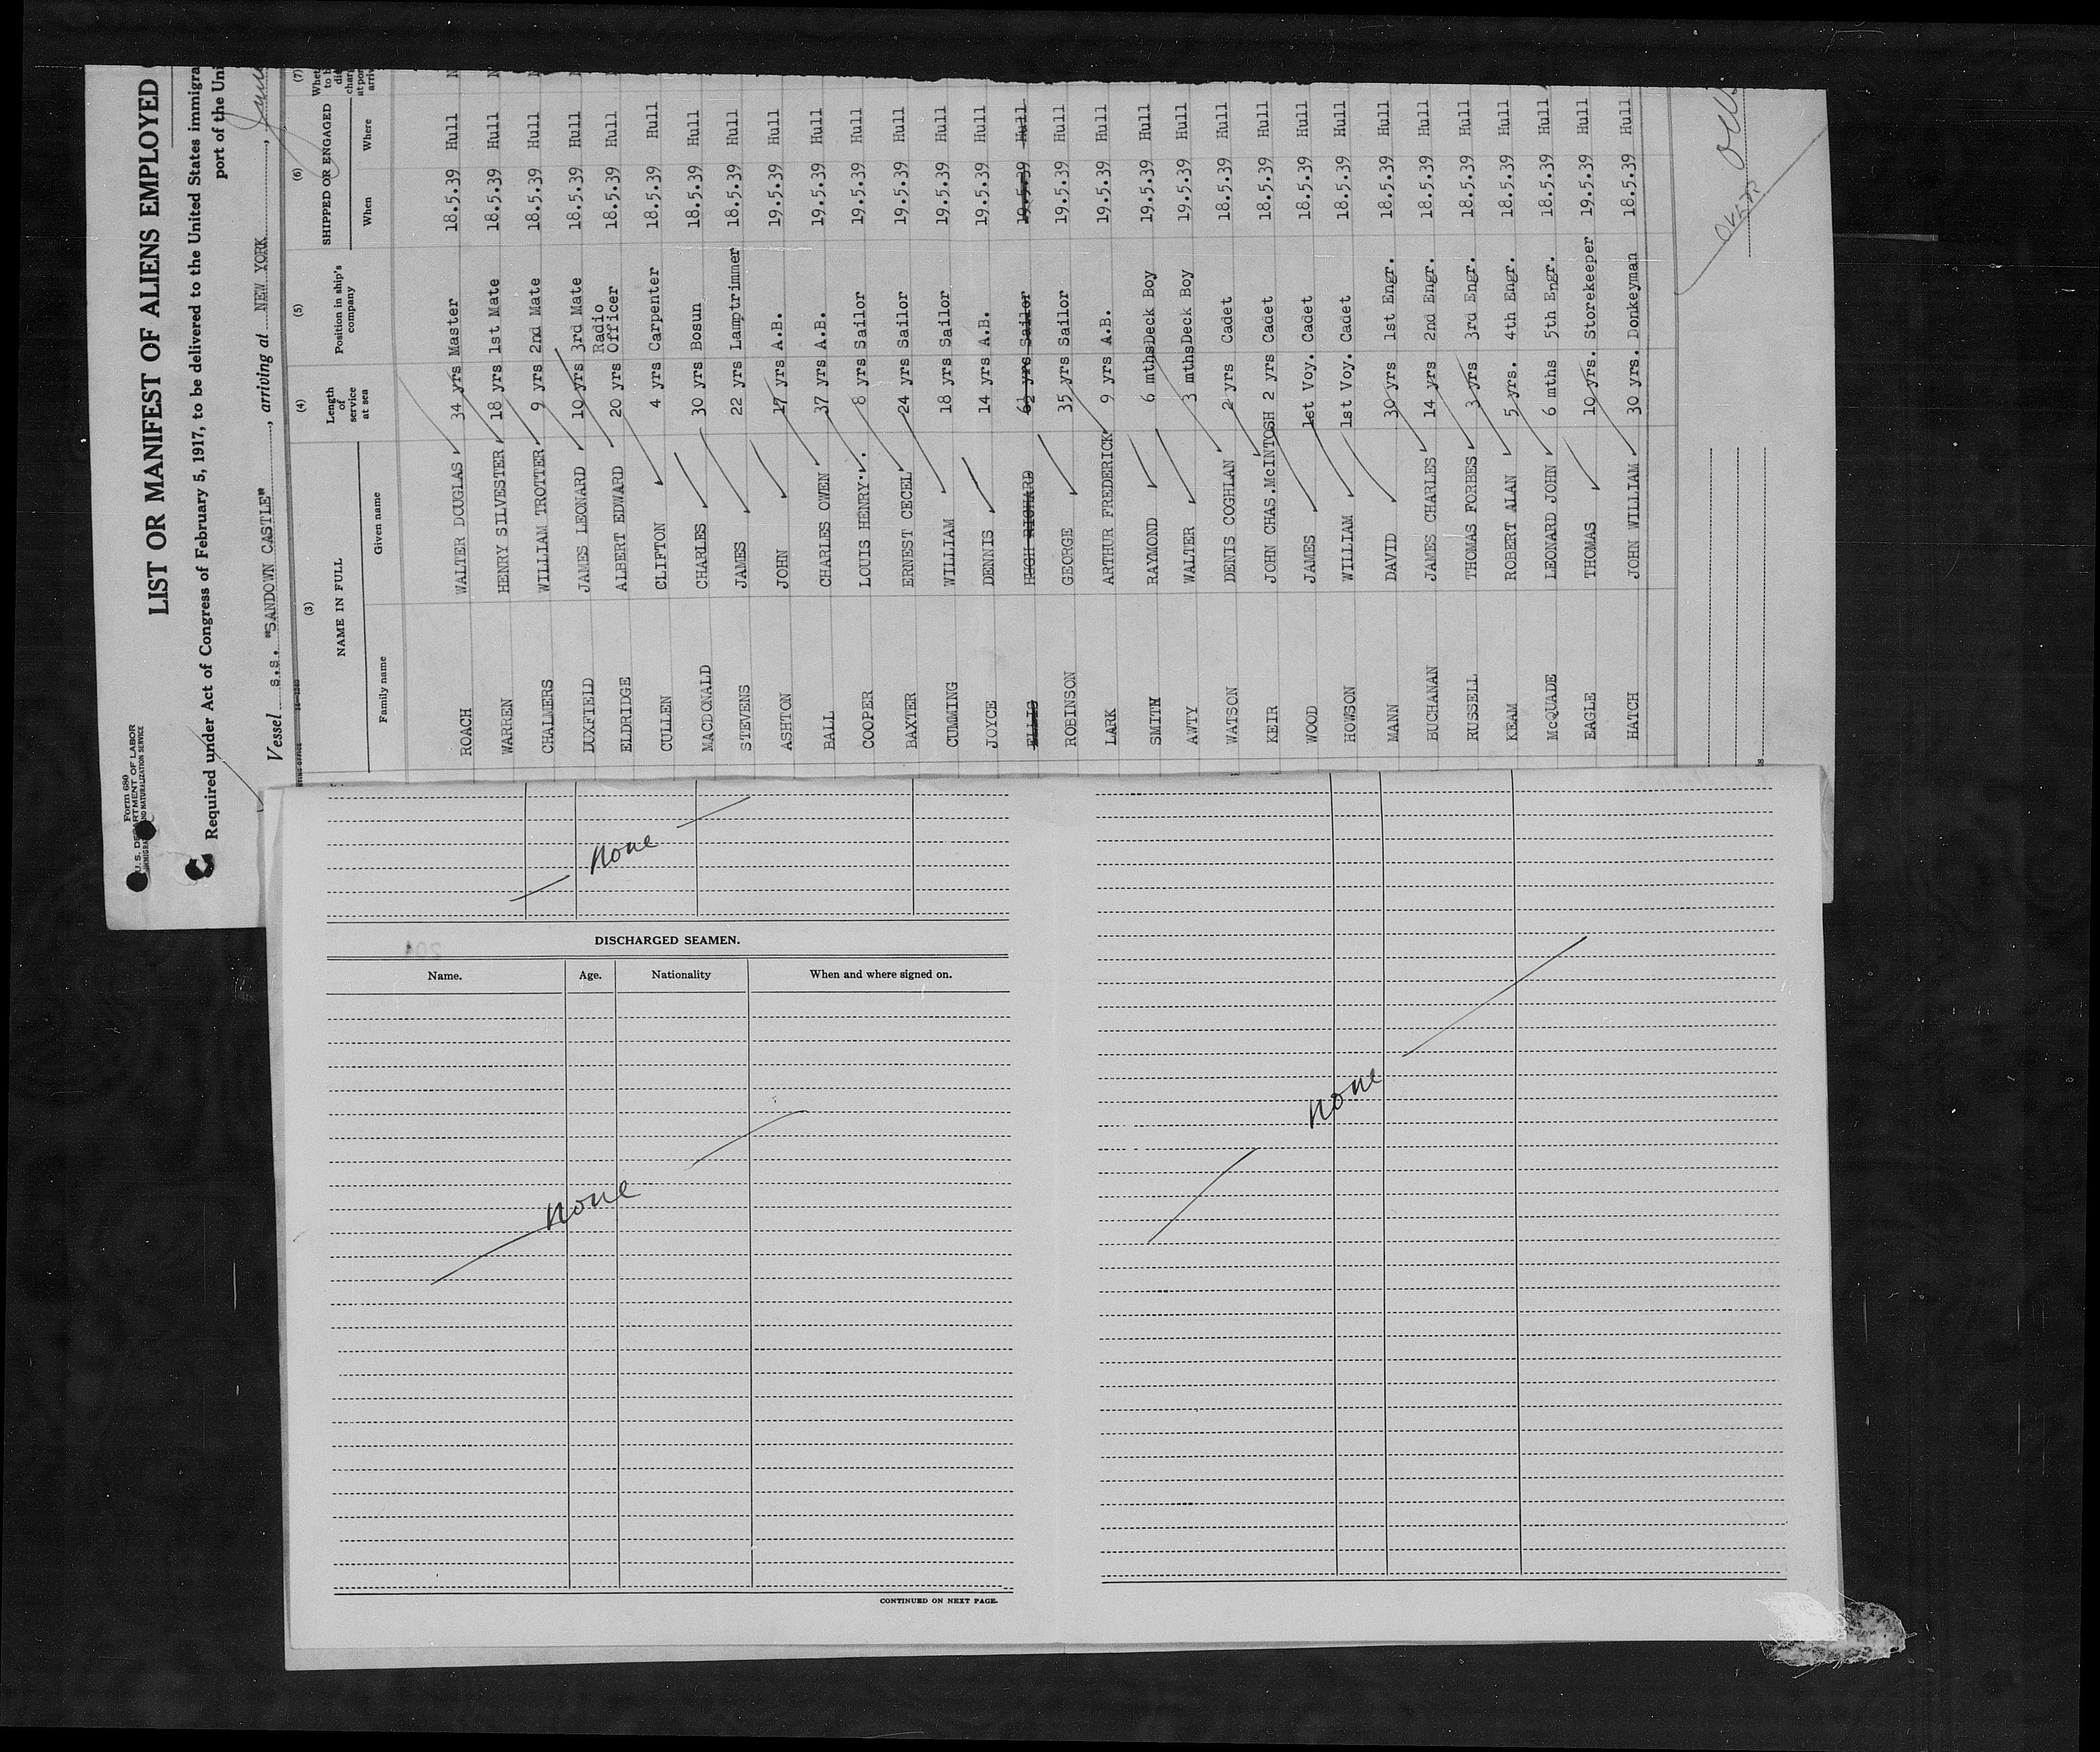 Form 680
U. S. DEPARTMENT OF LABOR
IMMIGRATION AND NATURALIZATION SERVICE
LIST OR MANIFEST OF ALIENS EMPLOYED
Required under Act of Congress of February 5, 1917, to be delivered to the United States immigra
port of the Uni
Vessel s.s. "SANDOWN CASTLE", arriving at NEW YORK,
(3) (4) (5) (6) (7)
NAME IN FULL Length of service at sea Position in ship's company SHIPPED OR ENGAGED
Family name Given name When Where
ROACH WALTER DOUGLAS 34 yrs Master 18.5.39 Hull
WARREN HENRY SILVESTER 18 yrs 1st Mate 18.5.39 Hull
CHALMERS WILLIAM TROTTER 9 yrs 2nd Mate 18.5.39 Hull
DUXFIELD JAMES LEONARD 10 yrs 3rd Mate 18.5.39 Hull
ELDRIDGE ALBERT EDWARD 20 yrs Radio Officer 18.5.39 Hull
CULLEN CLIFTON 4 yrs Carpenter 18.5.39 Hull
MACDONALD CHARLES 30 yrs Bosun 18.5.39 Hull
STEVENS JAMES 22 yrs Lamptrimmer 18.5.39 Hull
ASHTON JOHN 17 yrs A.B. 19.5.39 Hull
BALL CHARLES OWEN 37 yrs A.B. 19.5.39 Hull
COOPER LOUIS HENRY. 8 yrs Sailor 19.5.39 Hull
BAXTER ERNEST CECEL 24 yrs Sailor 19.5.39 Hull
CUMMING WILLIAM 18 yrs Sailor 19.5.39 Hull
JOYCE DENNIS 14 yrs A.B. 19.5.39 Hull
ELLIS HUGH RICHARD 6½ yrs Sailor 19.5.39 Hull
ROBINSON GEORGE 35 yrs Sailor 19.5.39 Hull
LARK ARTHUR FREDERICK 9 yrs A.B. 19.5.39 Hull
SMITH RAYMOND 6 mths Deck Boy 19.5.39 Hull
AWTY WALTER 3 mths Deck Boy 19.5.39 Hull
WATSON DENIS COGHLAN 2 yrs Cadet 18.5.39 Hull
KEIR JOHN CHAS.McINTOSH 2 yrs Cadet 18.5.39 Hull
WOOD JAMES 1st Voy. Cadet 18.5.39 Hull
HOWSON WILLIAM 1st Voy. Cadet 18.5.39 Hull
MANN DAVID 30 yrs 1st Engr. 18.5.39 Hull
BUCHANAN JAMES CHARLES 14 yrs 2nd Engr. 18.5.39 Hull
RUSSELL THOMAS FORBES 3 yrs 3rd Engr. 18.5.39 Hull
KEAM ROBERT ALAN 5 yrs. 4th Engr. 18.5.39 Hull
McQUADE LEONARD JOHN 6 mths 5th Engr. 18.5.39 Hull
EAGLE THOMAS 10 yrs. Storekeeper 19.5.39 Hull
HATCH JOHN WILLIAM 30 yrs. Donkeyman 18.5.39 Hull
none
DISCHARGED SEAMEN.
Name. Age. Nationality When and where signed on.
none
CONTINUED ON NEXT PAGE.
none